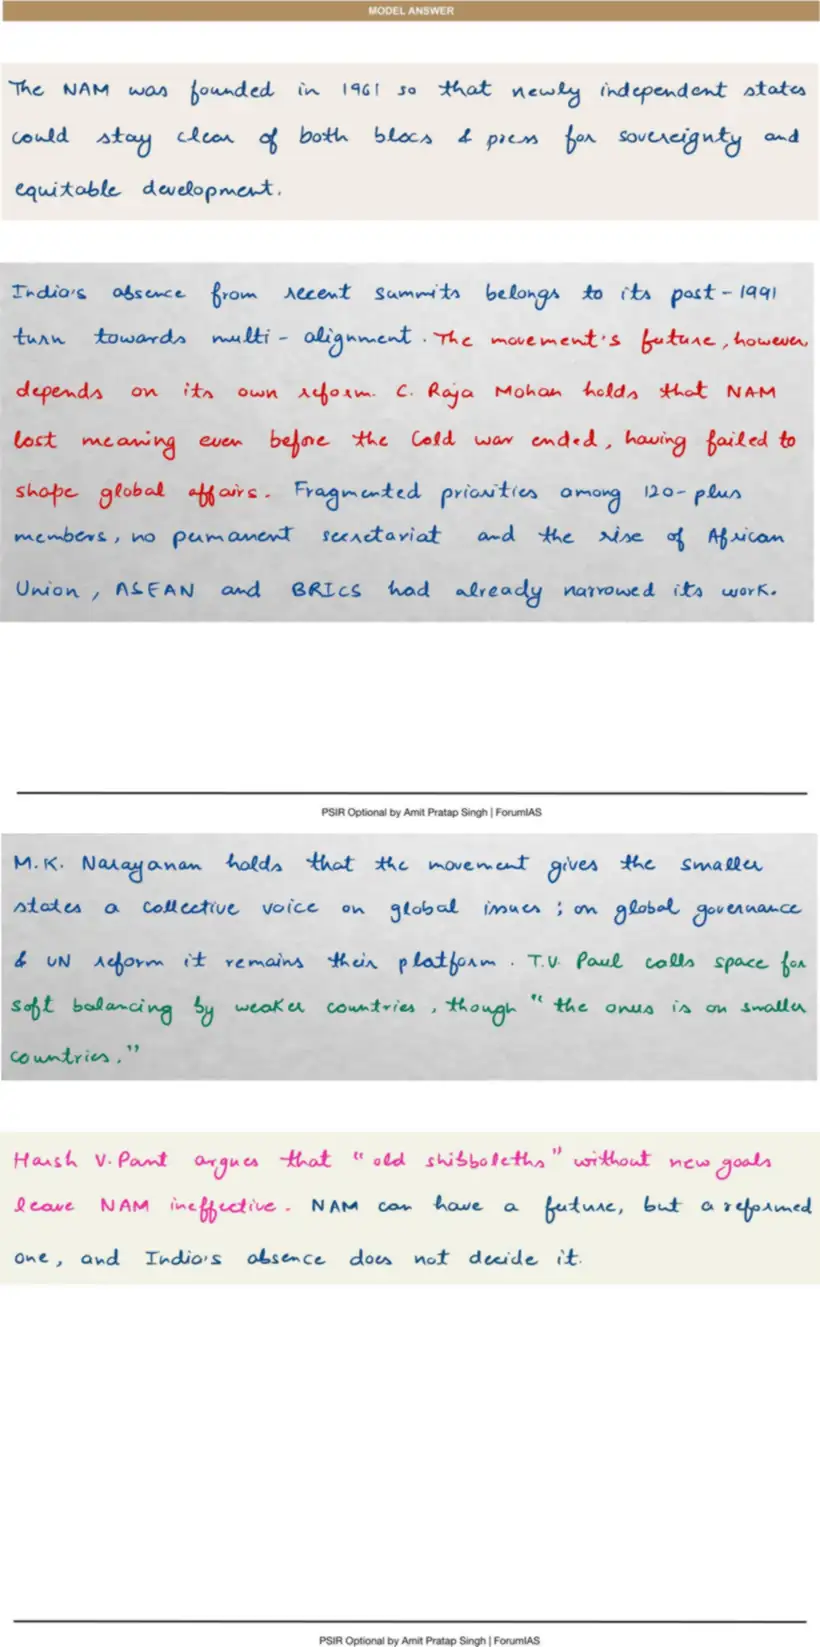 MODEL ANSWER
The NAM was founded in 1961 so that newly independent states
could stay clear of both blocs & press for sovereignty and
equitable development.
India's absence from recent summits belongs to its post-1991
turn towards multi-alignment. The movement's future, however,
depends on its own reform. C. Raja Mohan holds that NAM
lost meaning even before the Cold war ended, having failed to
shape global affairs. Fragmented priorities among 120-plus
members, no permanent secretariat and the rise of African
Union, ASEAN and BRICS had already narrowed its work.
PSIR Optional by Amit Pratap Singh | ForumIAS
M.K. Narayanan holds that the movement gives the smaller
states a collective voice on global issues; on global governance
& UN reform it remains their platform. T.V. Paul calls space for
soft balancing by weaker countries, though "the onus is on smaller
countries."
Harsh V. Pant argues that "old shibboleths" without new goals
leave NAM ineffective. NAM can have a future, but a reformed
one, and India's absence does not decide it.
PSIR Optional by Amit Pratap Singh | ForumIAS